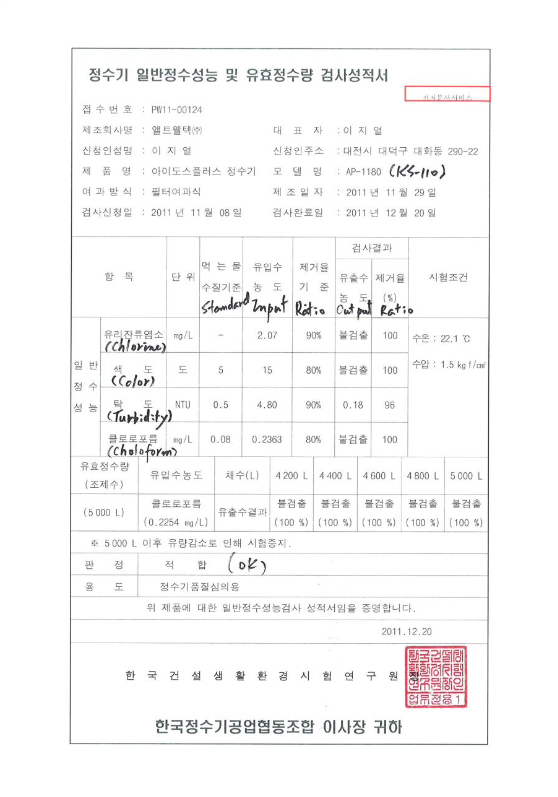 정수기 일반정수성능 및 유효정수량 검사성적서
접 수 번 호 : PW11-00124
제조회사명 : 엘트웰텍㈜ 대 표 자 : 이 지 열
신청인성명 : 이 지 열 신청인주소 : 대전시 대덕구 대화동 290-22
제 품 명 : 아이도스플러스 정수기 모 델 명 : AP-1180 (KS-110)
여 과 방 식 : 필터여과식 제 조 일 자 : 2011 년 11 월 29 일
검사신청일 : 2011 년 11 월 08 일 검사완료일 : 2011 년 12 월 20 일
항 목 단 위 먹 는 물 수질기준 Standard 유입수 농 도 Input 제거율 기 준 Ratio 검사결과 시험조건
유출수 농 도 Output 제거율 (%) Ratio
일 반 정 수 성 능
유리잔류염소 (Chlorine) mg/L - 2.07 90% 불검출 100
색 도 (Color) 도 5 15 80% 불검출 100
탁 도 (Turbidity) NTU 0.5 4.80 90% 0.18 96
클로로포름 (Choloform) mg/L 0.08 0.2363 80% 불검출 100
수온 : 22.1 ℃
수압 : 1.5 kg f/㎠
유효정수량 (조제수) 유입수농도 채수(L) 4 200 L 4 400 L 4 600 L 4 800 L 5 000 L
(5 000 L) 클로로포름 (0.2254 mg/L) 유출수결과 불검출 (100 %) 불검출 (100 %) 불검출 (100 %) 불검출 (100 %) 불검출 (100 %)
※ 5 000 L 이후 유량감소로 인해 시험중지.
판 정 적 합 (OK)
용 도 정수기품질심의용
위 제품에 대한 일반정수성능검사 성적서임을 증명합니다.
2011.12.20
한 국 건 설 생 활 환 경 시 험 연 구 원
한국정수기공업협동조합 이사장 귀하